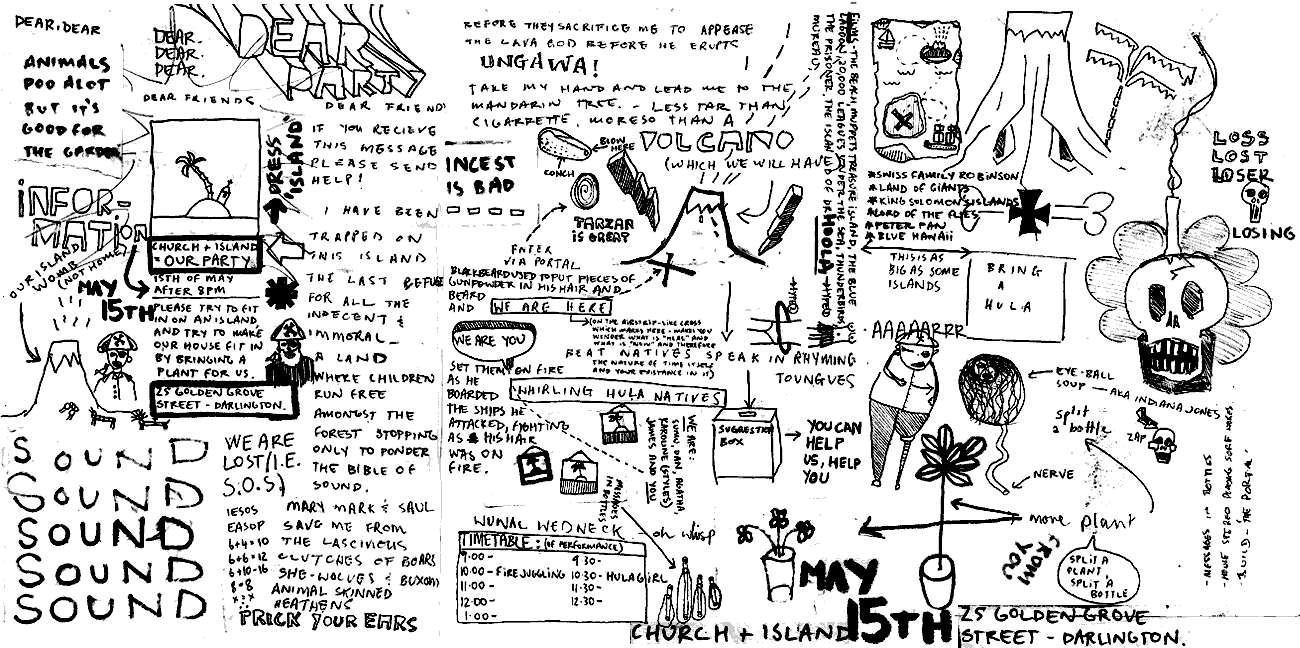 DEAR, DEAR
ANIMALS
POO ALOT
BUT IT'S
GOOD FOR
THE GARDEN
DEAR.
DEAR.
DEAR.
DEAR
DEAR FRIENDS
DEAR FRIEND
INFOR-
MATION
OUR ISLAND WOMB (NOT HOME)
DRESS
"ISLAND"
CHURCH + ISLAND
= OUR PARTY
MAY
15TH
15TH OF MAY
AFTER 8PM
PLEASE TRY TO FIT
IN ON AN ISLAND
AND TRY TO MAKE
OUR HOUSE FIT IN
BY BRINGING A
PLANT FOR US.
25 GOLDEN GROVE
STREET - DARLINGTON.
SOUND
SOUND
SOUND
SOUND
SOUND
IF YOU RECIEVE
THIS MESSAGE
PLEASE SEND
HELP!
I HAVE BEEN
TRAPPED ON
THIS ISLAND
THE LAST REFUGE
FOR ALL THE
INDECENT &
IMMORAL_
A LAND
WHERE CHILDREN
RUN FREE
AMONGST THE
FOREST STOPPING
ONLY TO PONDER
THE BIBLE OF
SOUND.
WE ARE
LOST/I.E.
S.O.S)
IESOS
EASOP
6+4=10
6+6=12
6+10=16
8=8
MARY MARK & SAUL
SAVE ME FROM
THE LASCIVIOUS
CLUTCHES OF BOARS
SHE-WOLVES & BUXOM
ANIMAL SKINNED
HEATHENS
PRICK YOUR EARS
BEFORE THEY SACRIFICE ME TO APPEASE
THE LAVA GOD BEFORE HE ERUPTS
UNGAWA!
TAKE MY HAND AND LEAD ME TO THE
MANDARIN TREE. - LESS FAR THAN
CIGARRETTE, MORESO THAN A
VOLCANO
(WHICH WE WILL HAVE
INCEST
IS BAD
BLOW HERE
CONCH
TARZAN
IS GREAT
ENTER
VIA PORTAL
BLACKBEARD USED TO PUT PIECES OF
GUNPOWDER IN HIS HAIR AND
BEARD
AND
WE ARE HERE
(ON THE AIRSTRIP-LIKE CROSS
WHICH MAKES HERE - MAKES YOU
WONDER WHAT IS "REAL" AND
WHAT IS "NOW" AND THEREFORE
THE NATURE OF TIME ITSELF
AND YOUR EXISTANCE IN IT)
WE ARE YOU
BEAT NATIVES SPEAK IN RHYMING
TOUNGUES
SET THEM ON FIRE
AS HE
BOARDED
THE SHIPS HE
ATTACKED, FIGHTING
AS HIS HAIR
WAS ON
FIRE.
WHIRLING HULA NATIVES
WE ARE:
JAMES AND YOU
MESSAGES
IN BOTTLES
SUGGESTION
BOX
YOU CAN
HELP
US, HELP
YOU
WUNAL WEDNECK
oh whisp
TIMETABLE: (OF PERFORMANCE)
9:00- 9:30-
10:00-FIRE JUGGLING 10:30-HULAGIRL
11:00- 11:30-
12:00- 12:30-
1:00-
MAY
15TH
CHURCH + ISLAND
25 GOLDEN GROVE
STREET - DARLINGTON.
FINAL - THE BEACH, MUPPETS TREASURE ISLAND, THE BLUE
LAGOON, 20,000 LEAGUES UNDER THE SEA, THUNDERBIRDS,
THE PRISONER, THE ISLAND OF DR HOOLA
MUREAU,
*SWISS FAMILY ROBINSON
*LAND OF GIANTS
*KING SOLOMONS ISLANDS
*LORD OF THE FLIES
*PETER PAN
*BLUE HAWAII
THIS IS AS
BIG AS SOME
ISLANDS
BRING
A
HULA
AAAAARRR
EYE-BALL
SOUP - AKA INDIANA JONES
split
a bottle
ZAP
NERVE
more plant
FROM
YOU
SPLIT A
PLANT,
SPLIT A
BOTTLE
LOSS
LOST
LOSER
LOSING
- MESSAGES IN BOTTLES
- HOUSE STEREO PLAYING SURF NOISES
- BUILD - 'THE PORTAL'